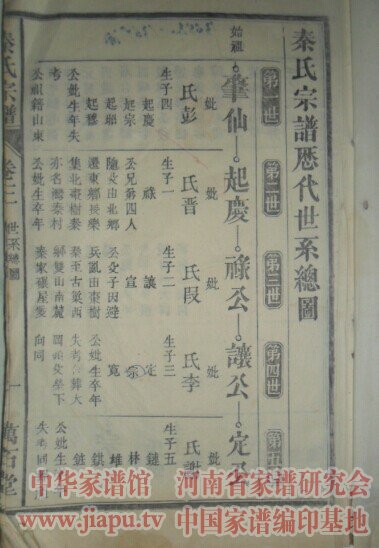 秦氏宗譜歷代世系總圖
第一世 第二世 第三世 第四世
始祖
筆仙 起慶 祿公 讓公 定公
妣 妣 妣 妣
氏彭 氏晉 氏段 氏李 氏謝
生子四
起慶
起宗
起聰
起穆
公妣生年失
考
公祖籍山東
生子一
祿
公兄弟四人
隨父山北鄉
遷東鄉長樂
集北棗樹秦
亦名灣秦村
公妣生卒年
生子二
讓
宣
公父子因避
兵亂由棗樹
秦至古巢西
鄉雙山南麓
秦家礦屋
生子三
定
宗
寬
公妣生卒年
失考合葬大
向同
生子五
鏈
林
雄
鉷
公妣生
失考同
秦氏宗譜
卷二
世系總圖
一
萬石堂
中华家谱馆 河南省家谱研究会
www.jiapu.tv 中国家谱编印基地